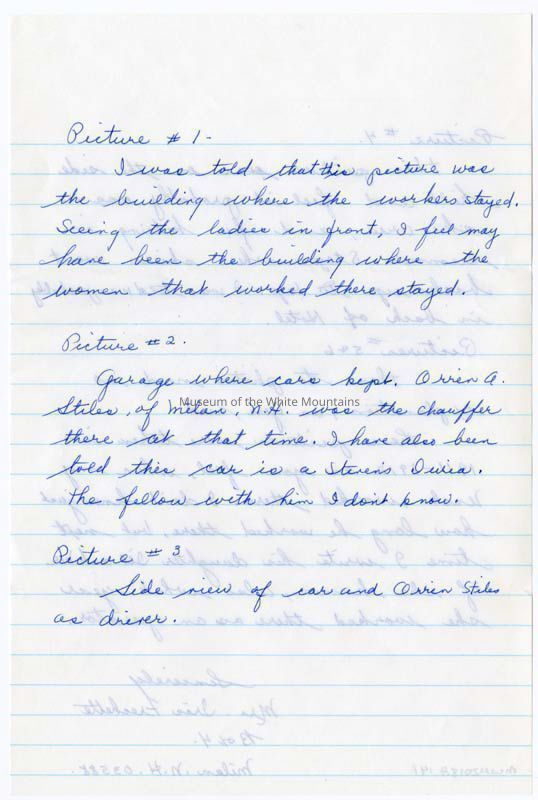 Picture # 1-
I was told that this picture was
the building where the workers stayed.
Seeing the ladies in front, I feel may
have been the building where the
women that worked there stayed.
Picture # 2.
Garage where cars kept. Orrin A.
Stiles, of Milan, N.H. was the chauffer
Museum of the White Mountains
there at that time. I have also been
told this car is a Stevens Duria.
The fellow with him I dont know.
Picture # 3
Side view of car and Orrin Stiles
as driver.